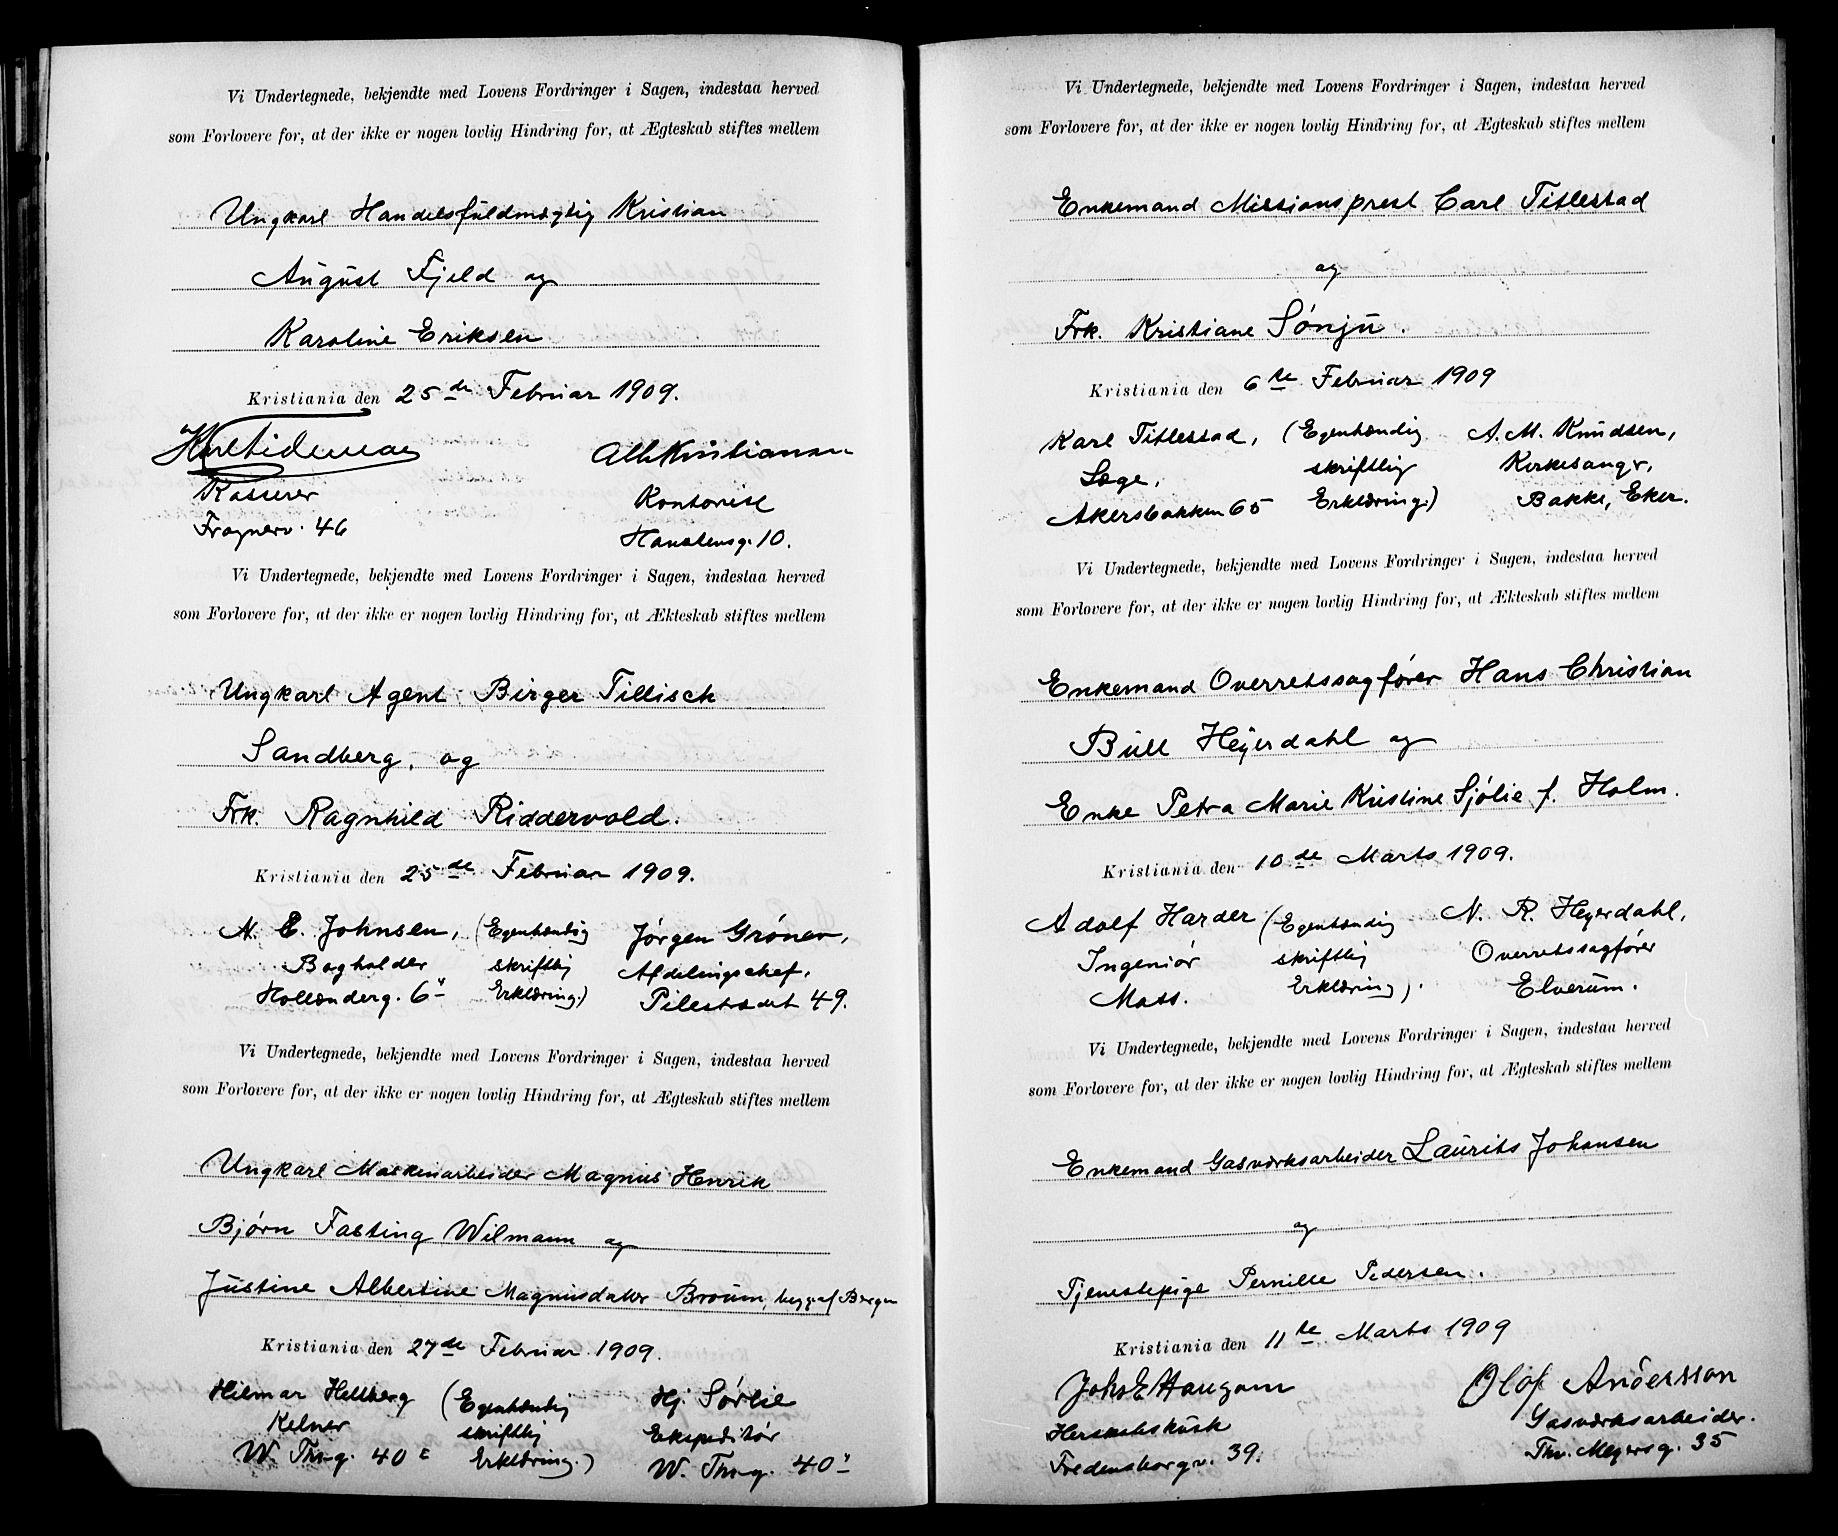 Vi Undertegnede, bekjendte med Lovens Fordringer i Sagen, indestaa herved
som Forlovere for, at der ikke er nogen lovlig Hindring for, at Ægteskab stiftes mellem
Ungkarl Handelsfuldmægtig Kristian
August Fjeld og
Karoline Eriksen
Kristiania den 25de Februar 1909.
Kasserer
Kontorist
Frognerv. 46
10.
Vi Undertegnede, bekjendte med Lovens Fordringer i Sagen, indestaa herved
som Forlovere for, at der ikke er nogen lovlig Hindring for, at Ækteskab stiftes mellem
Ungkarl Agent Birger Tillisch
Sandberg, og
Frk. Ragnhild Riddervold.
Kristiania den 25de Februar 1909.
N. E. Johnsen, (Egenhændig Jørgen Grøner,
Bogholder skriftlig Afdelingschef,
Hollænderg. 6" Erklæring.) Pilestrædet 49.
Vi Undertegnede, bekjendte med Lovens Fordringer i Sagen, indestaa herved
som Forlovere for, at der ikke er nogen lovlig Hindring for, at Ægteskab stiftes mellem
Ungkarl Maskinarbeider Magnus Henrik
Bjørn Fasting Wilmann og
Justine Albertine Magnusdatter Broum, begge af Bergen
Kristiania den 27de Februar 1909.
Hilmar Hellberg (Egenhændig Hj. Sørlie
Kelner skriftlig Ekspeditør
W. Thr.g. 40 Erklæring.) W. Thr.g. 40"
Vi Undertegnede, bekjendte med Lovens Fordringer i Sagen, indestaa herved
som Forlovere for, at der ikke er nogen lovlig Hindring for, at Ægteskab stiftes mellem
Enkemand Missionsprest Carl Titlestad
og
Frk. Kristiane Sønju.
Kristiania den 6te Februar 1909
Karl Titlestad, (Egenhændig A. M. Knudsen,
Læge, skriftlig Kirkesangr,
Akersbakken 65 Erklæring.) Bakke, Eker.
Vi Undertegnede, bekjendte med Lovens Fordringer i Sagen, indestaa herved
som Forlovere for, at der ikke er nogen lovlig Hindring for, at Ækteskab stiftes mellem
Enkemand Overretssagfører Hans Christian
Bull Heyerdahl og
Enke Petra Marie Kristine Sjølie f. Holm.
Kristiania den 10de Marts 1909.
Adolf Harder (Egenhændig N. R. Heyerdahl,
Ingeniør skriftlig Overretssagfører
Moss. Erklæring). Elverum.
Vi Undertegnede, bekjendte med Lovens Fordringer i Sagen, indestaa herved
som Forlovere for, at der ikke er nogen lovlig Hindring for, at Ægteskab stiftes mellem
Enkemand Gasværksarbeider Laurits Johansen
og
Tjenestepige Pernille Pedersen.
Kristiania den 11te Marts 1909
Johs E Haugom Olof Andersson
Herskabskusk Gasværksarbeider.
Fredensborgv. 39. Thv. Meyersg. 35